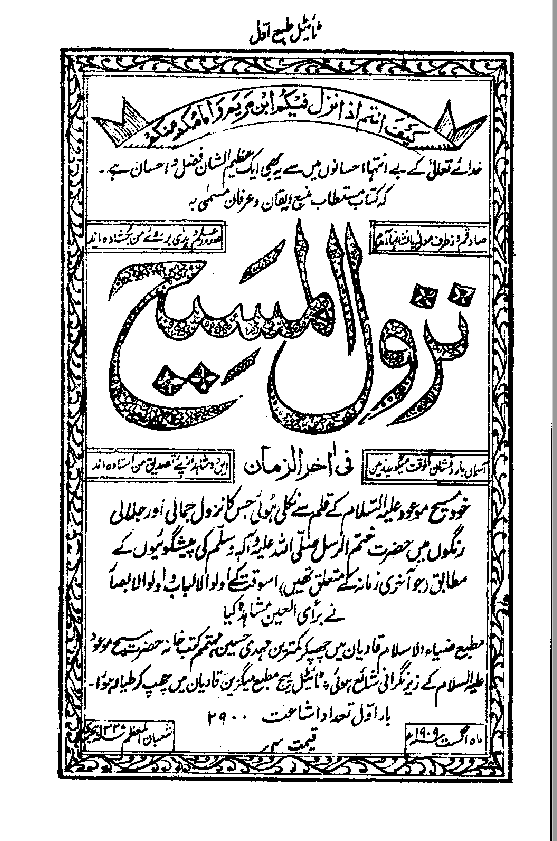 ٹائیٹل طبع اوّل
کیف انتم اذا نزل فیکم ابن مریم و امامکم منکم
خدائے تعالیٰ کے بے انتہا احسانوں میں سے یہ بھی ایک عظیم الشان فضل و احسان ہے۔
کہ کتاب مستطاب منبع ایقان و عرفان مسمّٰی بہ
نزول المسیح
آسمان بارد نشان الوقت میگوید زمین
فی آخر الزمان
این دو شاہد از پئے تصدیق من استادہ اند
خود مسیح موعود علیہ السلام کے قلم سے نکلی ہوئی جس کا نزول جمالی اور جلالی
رنگوں میں حضرت ختم الرسل صلی اللہ علیہ و آلہ وسلم کی پیشگوئیوں کے
مطابق (جو آخری زمانہ کے متعلق تھیں) اسوقت کے اولو الالباب و اولو الابصار
نے برأی العین مشاہدہ کیا
مطبع ضیاء الاسلام قادیان میں چھپکر کمترین مہدی حسین مہتمم کتب خانہ حضرت مسیح موعود
علیہ السلام کے زیر نگرانی شائع ہوئی، ٹائیٹل پیج مطبع میگزین قادیان میں چھپ کر طیار ہوا۔
بار اوّل تعداد اشاعت ۲۹۰۰
ماہ اگست ۱۹۰۹ء
قیمت
شعبان المعظم ۱۳۲۷